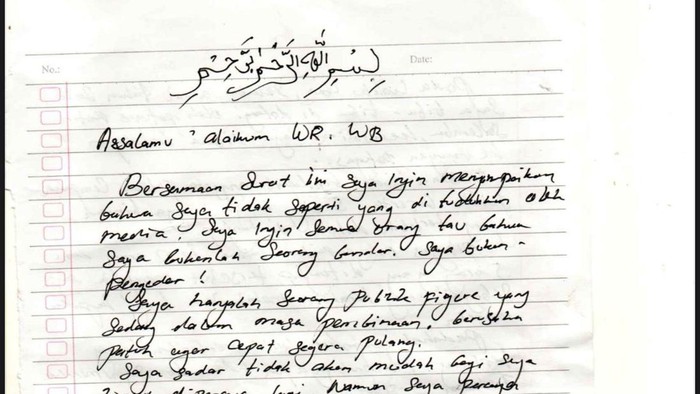 بِسْمِ اللَّهِ الرَّحْمَٰنِ الرَّحِيمِ
No.: Date:
Assalamu 'alaikum WR. WB
Bersamaan Surat ini Saya Ingin menyampaikan
bahwa Saya tidak seperti yang di tuduhkan oleh
media. Saya Ingin Semua orang tau bahwa
Saya bukanlah Seorang bandar. Saya bukan -
pengedar !
Saya hanyalah Seorang publik figure yang
Sedang dalam masa pembinaan, berusaha
patuh agar cepat segera pulang.
Saya Sadar tidak akan mudah bagi saya
lagi. Namun Saya percaya